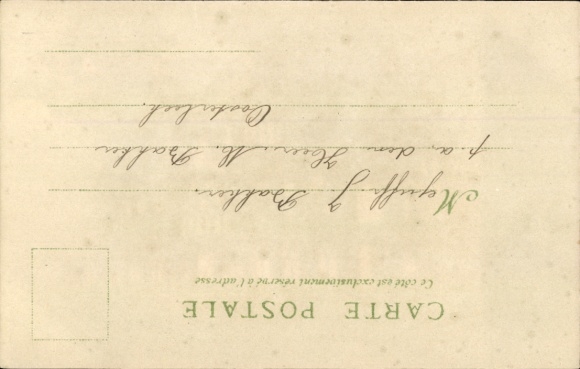 CARTE POSTALE
Ce côté est exclusivement réservé à l'adresse
Mejuffr. J. Bakker.
p. a. den Heer M. Bakker
Oosterbeek.